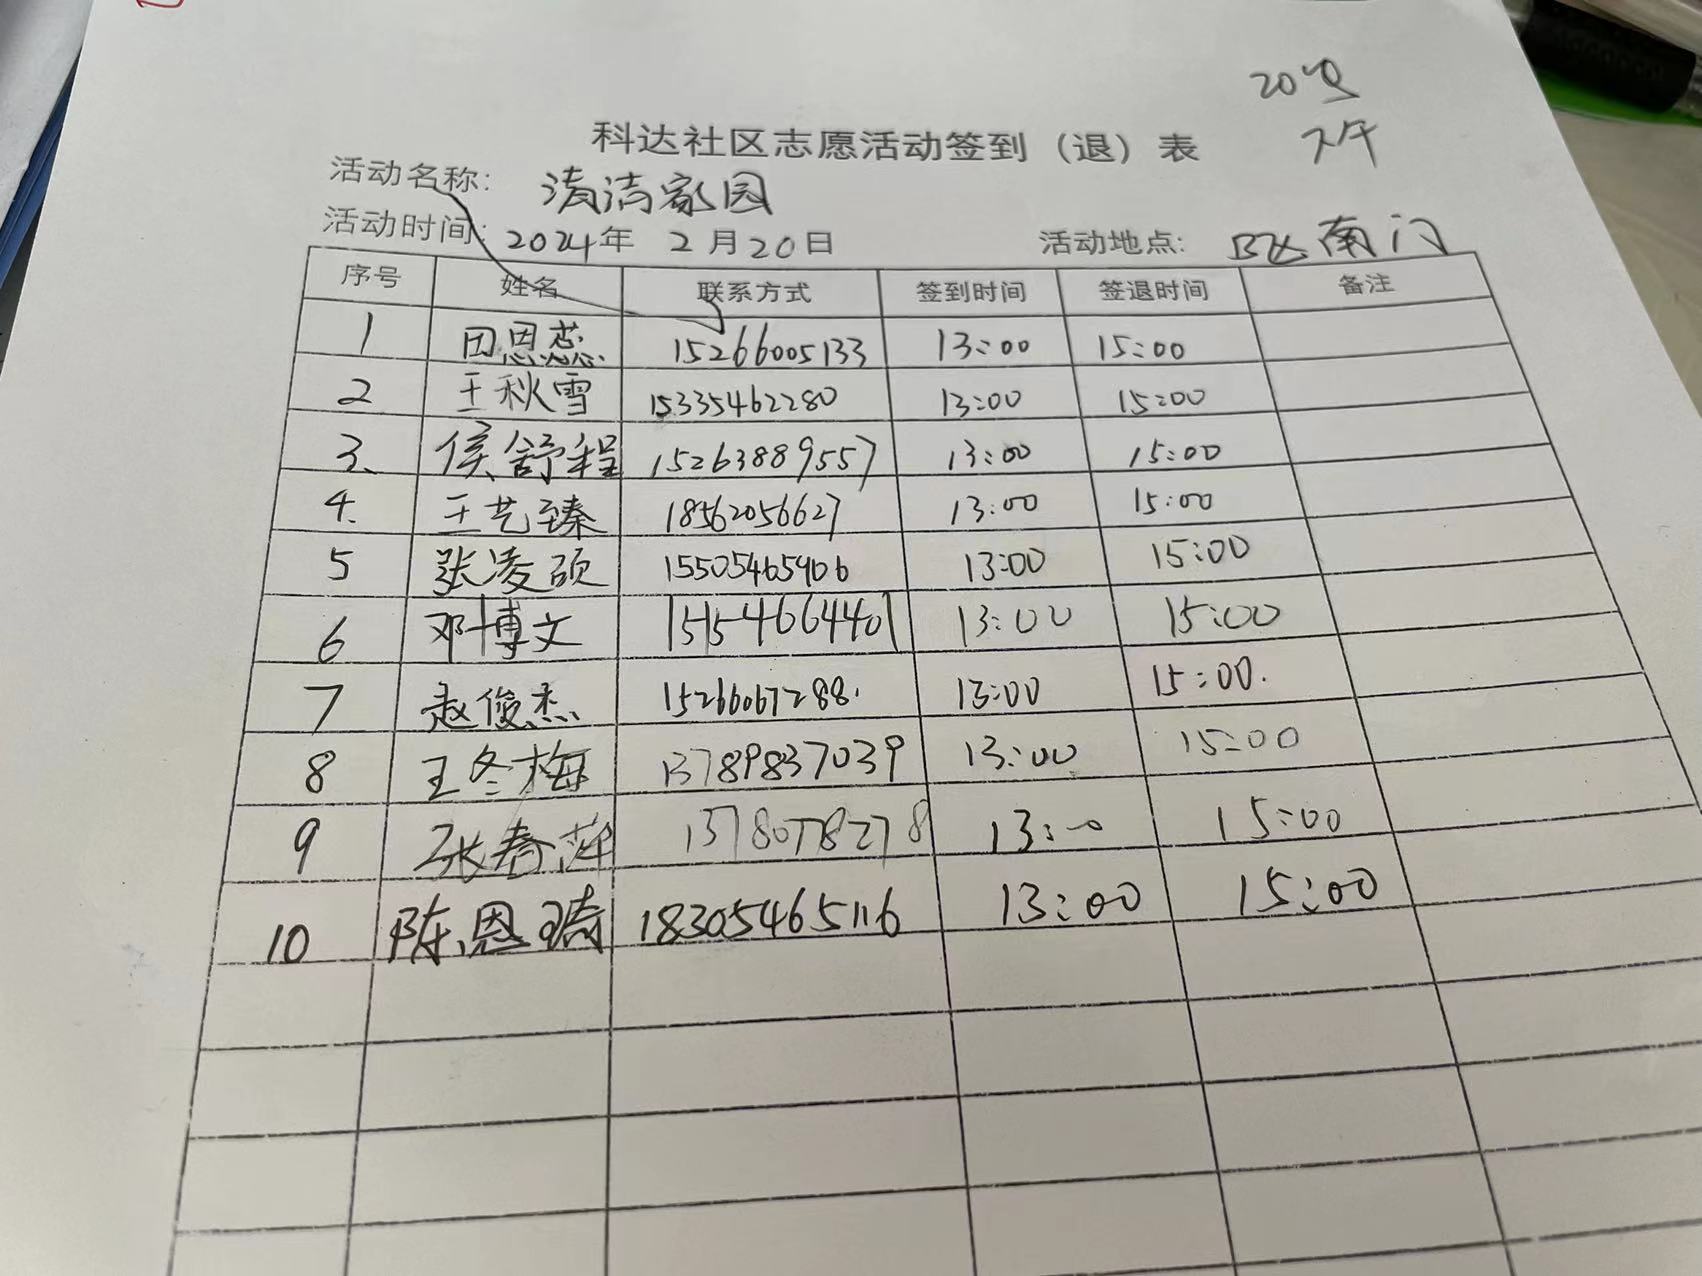 20号
下午
科达社区志愿活动签到（退）表
活动名称: 清洁家园
活动时间: 2024年 2月20日 活动地点: B区南门
序号 姓名 联系方式 签到时间 签退时间 备注
1 田恩蕊 15266005133 13:00 15:00
2 王秋雪 15335462280 13:00 15:00
3、 侯舒程 15263889557 13:00 15:00
4、 王艺臻 18562056627 13:00 15:00
5 张凌硕 15505465406 13:00 15:00
6 邓博文 15154664401 13:00 15:00
7 赵俊杰 15266067288. 13:00 15:00.
8 王冬梅 13789837039 13:00 15:00
9 张春萍 13780778278 13:00 15:00
10 陈恩琦 18305465116 13:00 15:00